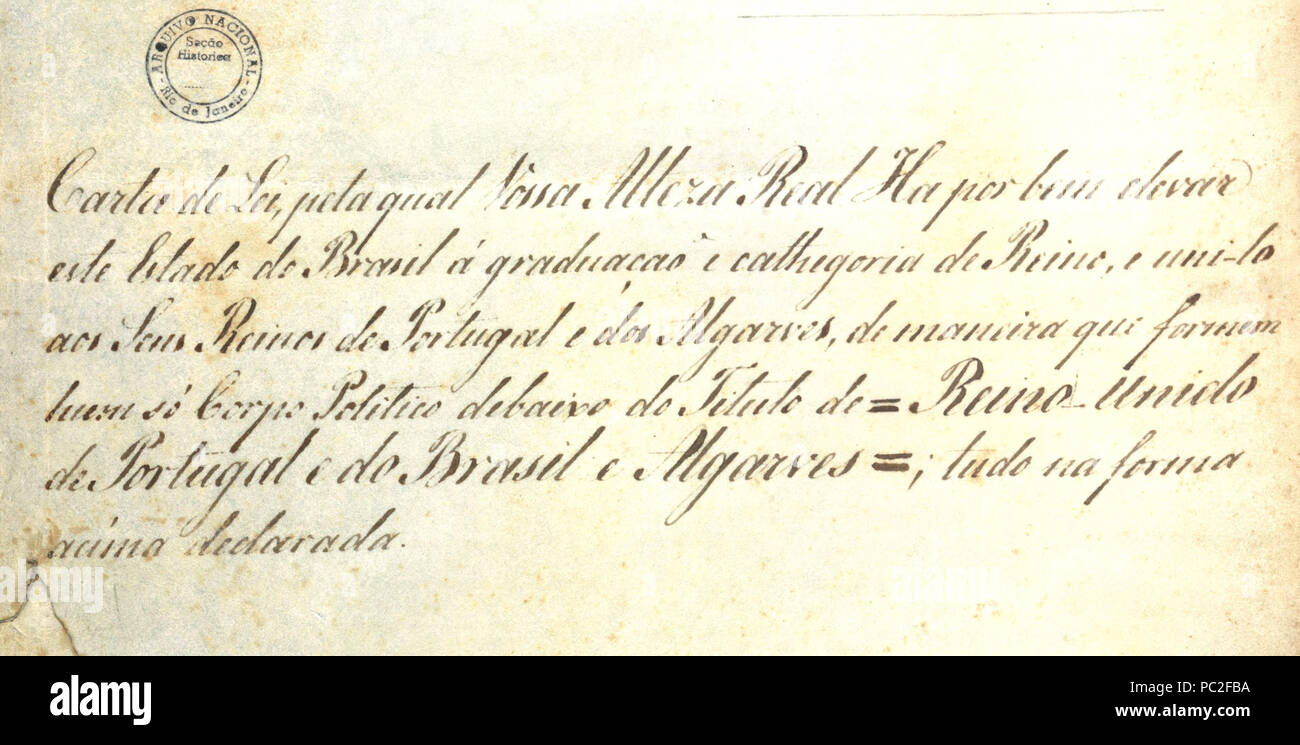 ARQUIVO NACIONAL
Secão
Historica
Rio de Janeiro
Carta de Lei, pela qual Vossa Alteza Real Ha por bem elevar
este Estado do Brasil á graduação e cathegoria de Reino, e uni-lo
aos Seus Reinos de Portugal e dos Algarves, de maneira que formem
hum só Corpo Politico debaixo do Titulo de = Reino-Unido
de Portugal e do Brasil e Algarves =; tudo na forma
acima declarada.
alamy
alamy
alamy
PC2FBA
www.alamy.com